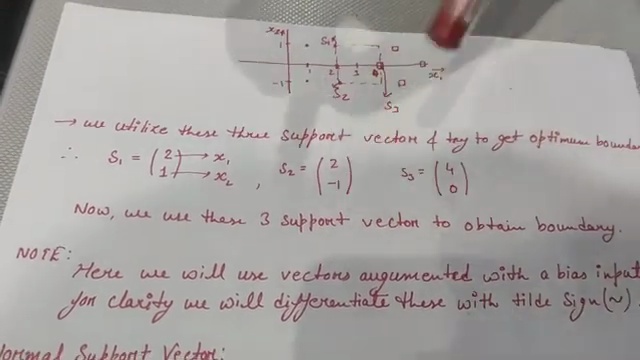 x₂
1
S₁
1 2 3 4
x₁
-1
S₂
S₃
→ we utilize these three support vector & try to get optimum boundar
∴ S₁ = (2 1) → x₁ → x₂ , S₂ = (2 -1) S₃ = (4 0)
Now, we use these 3 support vector to obtain boundary.
NOTE:
Here we will use vectors augumented with a bias input
for clarity we will differentiate these with tilde sign (~)
Normal Support Vector: